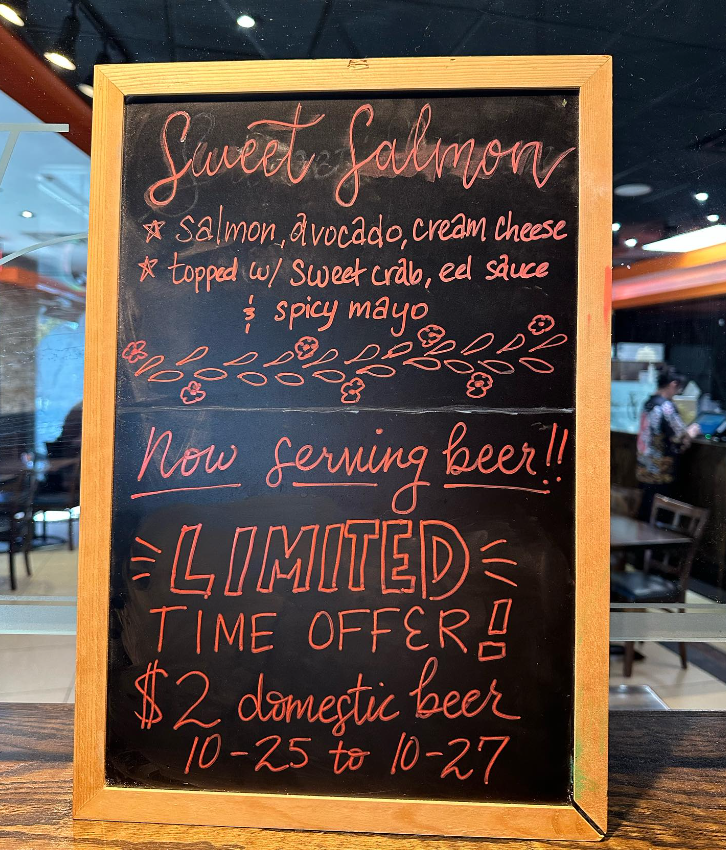 Sweet Salmon
☆ salmon, avocado, cream cheese
☆ topped w/ sweet crab, eel sauce
& spicy mayo
Now serving beer!!
LIMITED
TIME OFFER!
$2 domestic beer
10-25 to 10-27